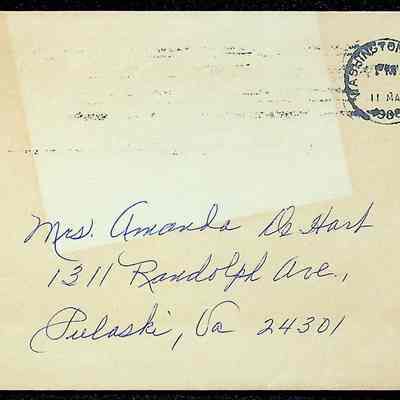 WASHINGTON
PM
11 MA
Mrs. Amanda De Hart
1311 Randolph Ave.,
Pulaski, Va 24301